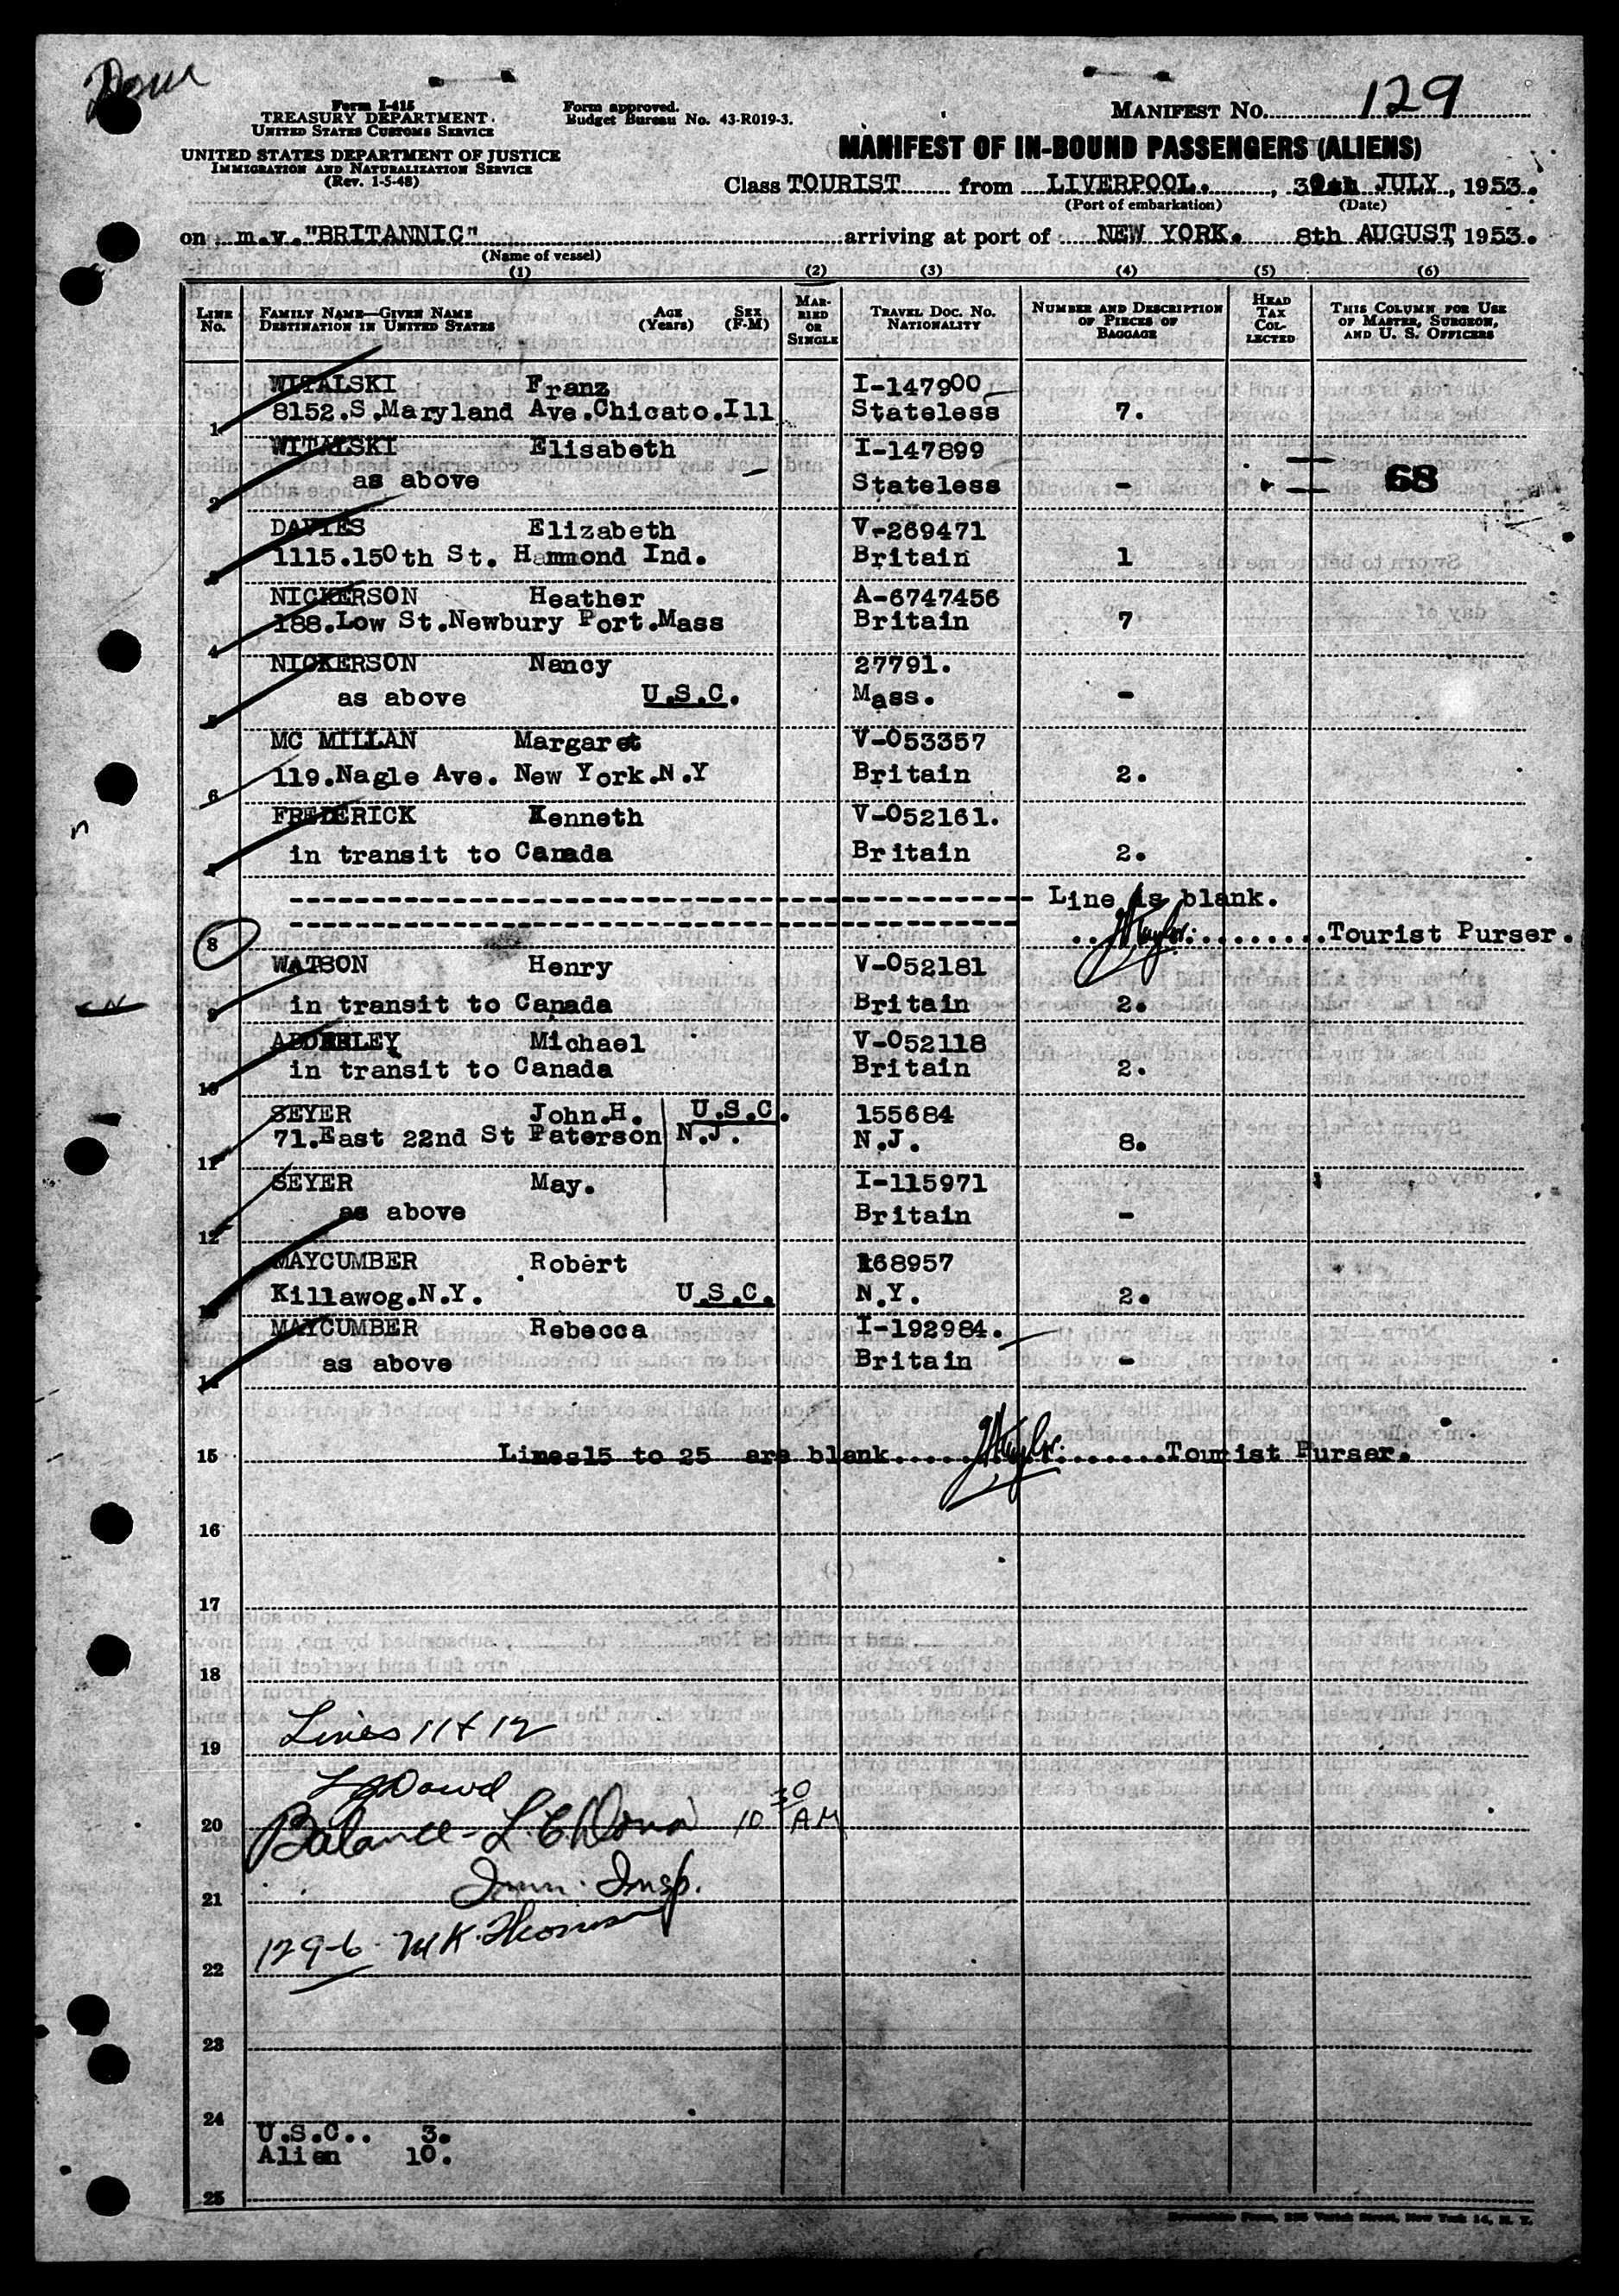 Form I-415
TREASURY DEPARTMENT
UNITED STATES CUSTOMS SERVICE
UNITED STATES DEPARTMENT OF JUSTICE
IMMIGRATION AND NATURALIZATION SERVICE
(Rev. 1-5-48)
Form approved.
Budget Bureau No. 43-R019-3.
MANIFEST NO. 129
MANIFEST OF IN-BOUND PASSENGERS (ALIENS)
Class TOURIST from LIVERPOOL. , JULY, 1953.
(Port of embarkation) (Date)
on m.v. "BRITANNIC" arriving at port of NEW YORK. 8th AUGUST, 1953.
(Name of vessel)
(1) (2) (3) (4) (5) (6)
LINE No. FAMILY NAME—GIVEN NAME DESTINATION IN UNITED STATES AGE (Years) SEX (F-M) MARRIED OR SINGLE TRAVEL DOC. NO. NATIONALITY NUMBER AND DESCRIPTION OF PIECES OF BAGGAGE HEAD TAX COLLECTED THIS COLUMN FOR USE OF MASTER, SURGEON, AND U. S. OFFICERS
WITALSKI Franz I-147900
1 8152.S.Maryland Ave.Chicato.Ill Stateless 7.
WITALSKI Elisabeth I-147899
2 as above Stateless - 68
DAVIES Elizabeth V-269471
3 1115.150th St. Hammond Ind. Britain 1
NICKERSON Heather A-6747456
4 188.Low St.Newbury Port.Mass Britain 7
NICKERSON Nancy 27791.
5 as above U.S.C. Mass. -
MC MILLAN Margaret V-053357
6 119.Nagle Ave. New York.N.Y Britain 2.
FREDERICK Kenneth V-052161.
7 in transit to Canada Britain 2.
Line is blank.
8 Tourist Purser.
WATSON Henry V-052181
9 in transit to Canada Britain 2.
ADDERLEY Michael V-052118
10 in transit to Canada Britain 2.
SEYER John.H. U.S.C. 155684
11 71.East 22nd St Paterson N.J. N.J. 8.
SEYER May. I-115971
12 as above Britain -
MAYCUMBER Robert 168957
13 Killawog.N.Y. U.S.C. N.Y. 2.
MAYCUMBER Rebecca I-192984.
14 as above Britain -
15 Lines15 to 25 are blank Tourist Purser.
16
17
18
Lines 11 + 12
19
20 Balance - 10 30 AM
Imm. Insp.
21
129-6
22
23
24
U.S.C.. 3.
Alien 10.
25